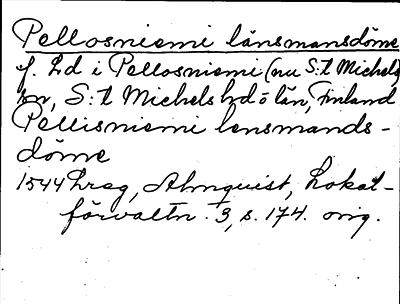 Pellosniemi länsmansdöme
f. Ld i Pellosniemi (nu S:t Michels
sn, S:t Michels hd o län, Finland
Pellisniemi lensmands-
döme
1544 hrag, Almquist, Lokal-
förvaltn. 3, s. 174. orig.